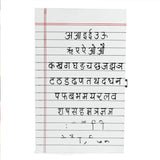 अआइईउऊ
ऋएऐओऔ
कखगघङचछजझञ
टठडढणतथदधन
पफबभमयरलव
शषसहक्षत्रज्ञ